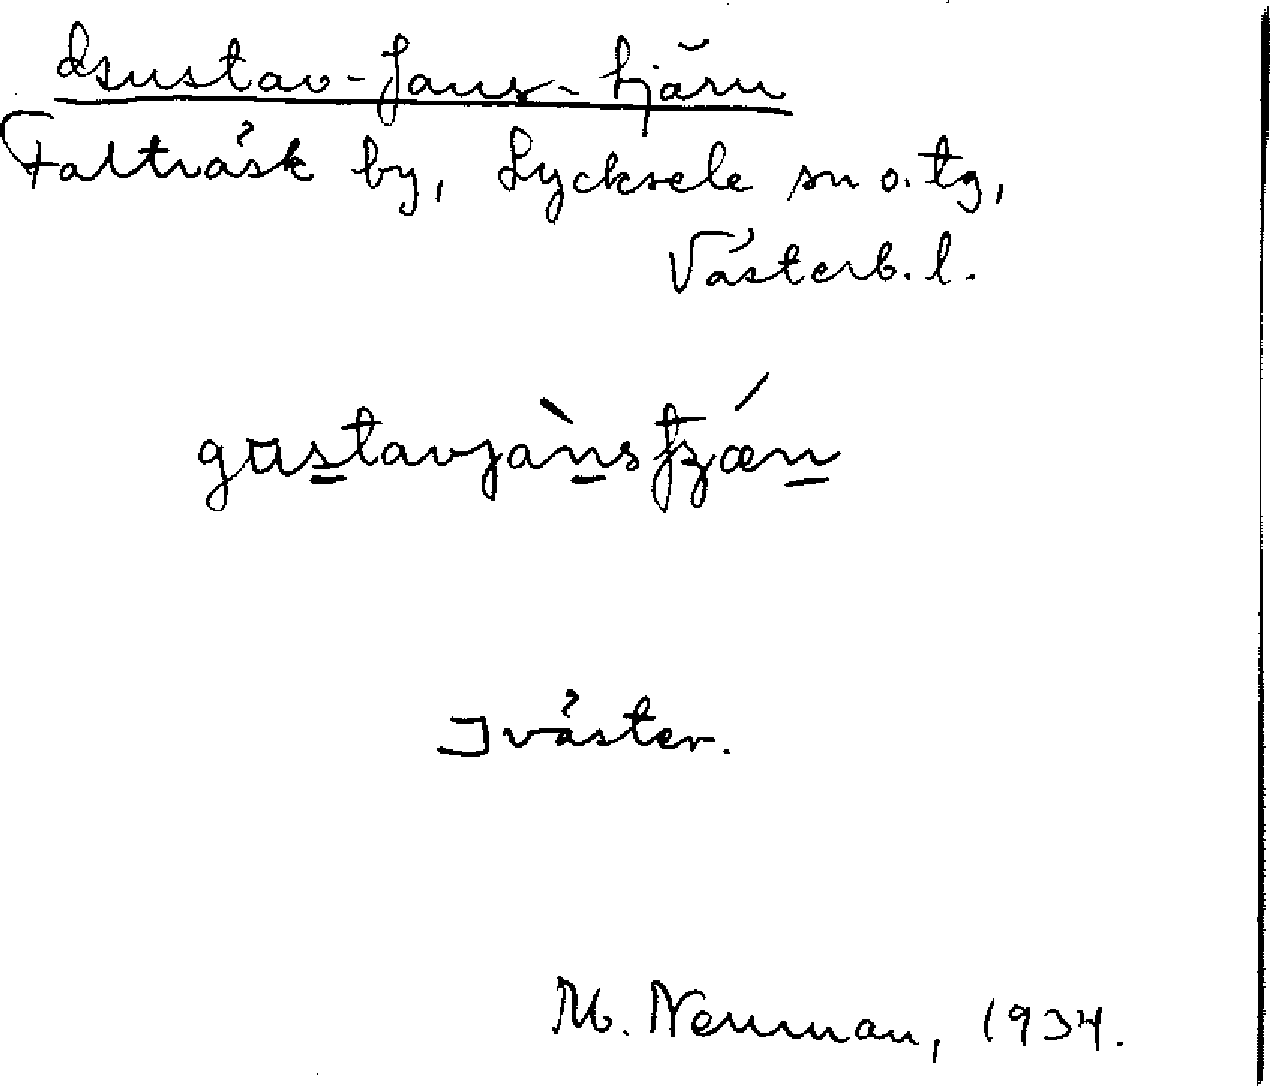 Gustav-Jans-tjärn
Falträsk by, Lycksele sn o. tg,
Västerb. l.
gustavjànstjǽn
väster.
M. Neuman, 1934.